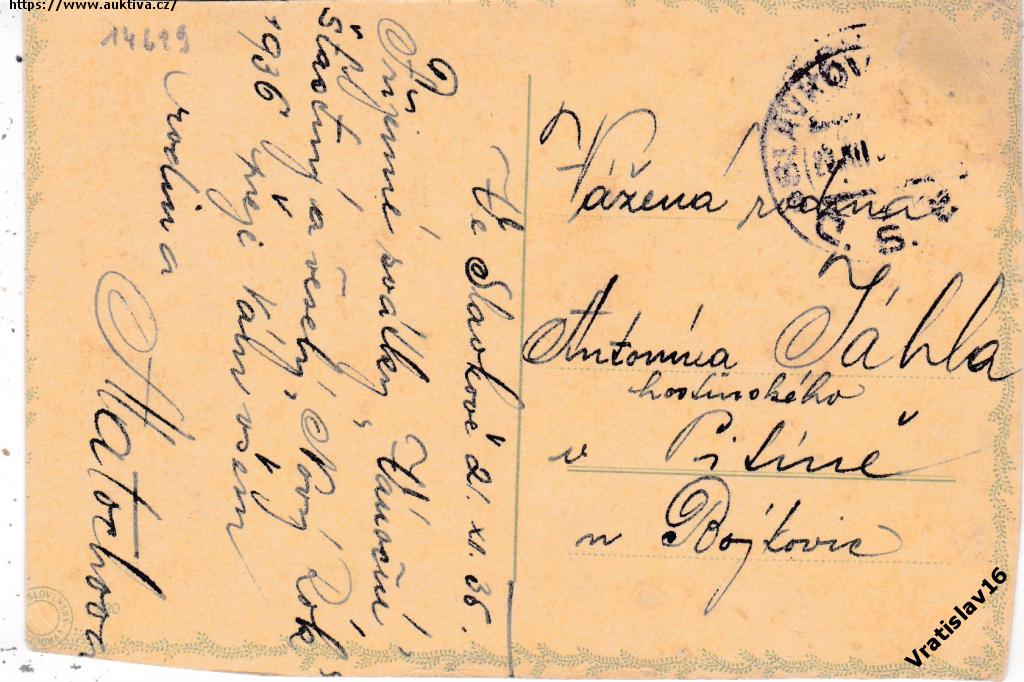 https://www.auktiva.cz/
14619
Ve Slavkově 21. XI. 35.
Příjemné svátky Vánoční
Šťastný a veselý Nový Rok
1936 přeje Vám všem
rodina
Matochova
SLAVKOV
Č. S.
Vážená rodina
Antonína Táhla
hostinského
v Pitíně
u Bojkovic
Vratislav16